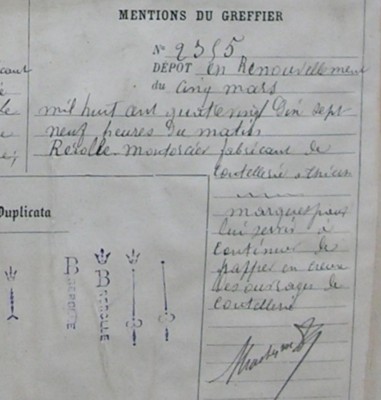 MENTIONS DU GREFFIER
N° 2355
DÉPÔT en Renouvellement
du cinq mars
mil huit cent quatre vingt dix sept
neuf heures du matin
fabricant de
coutellerie à Thiers
marques pour
lui servir à
continuer de
frapper en creux
les ouvrages de
coutellerie
Duplicata